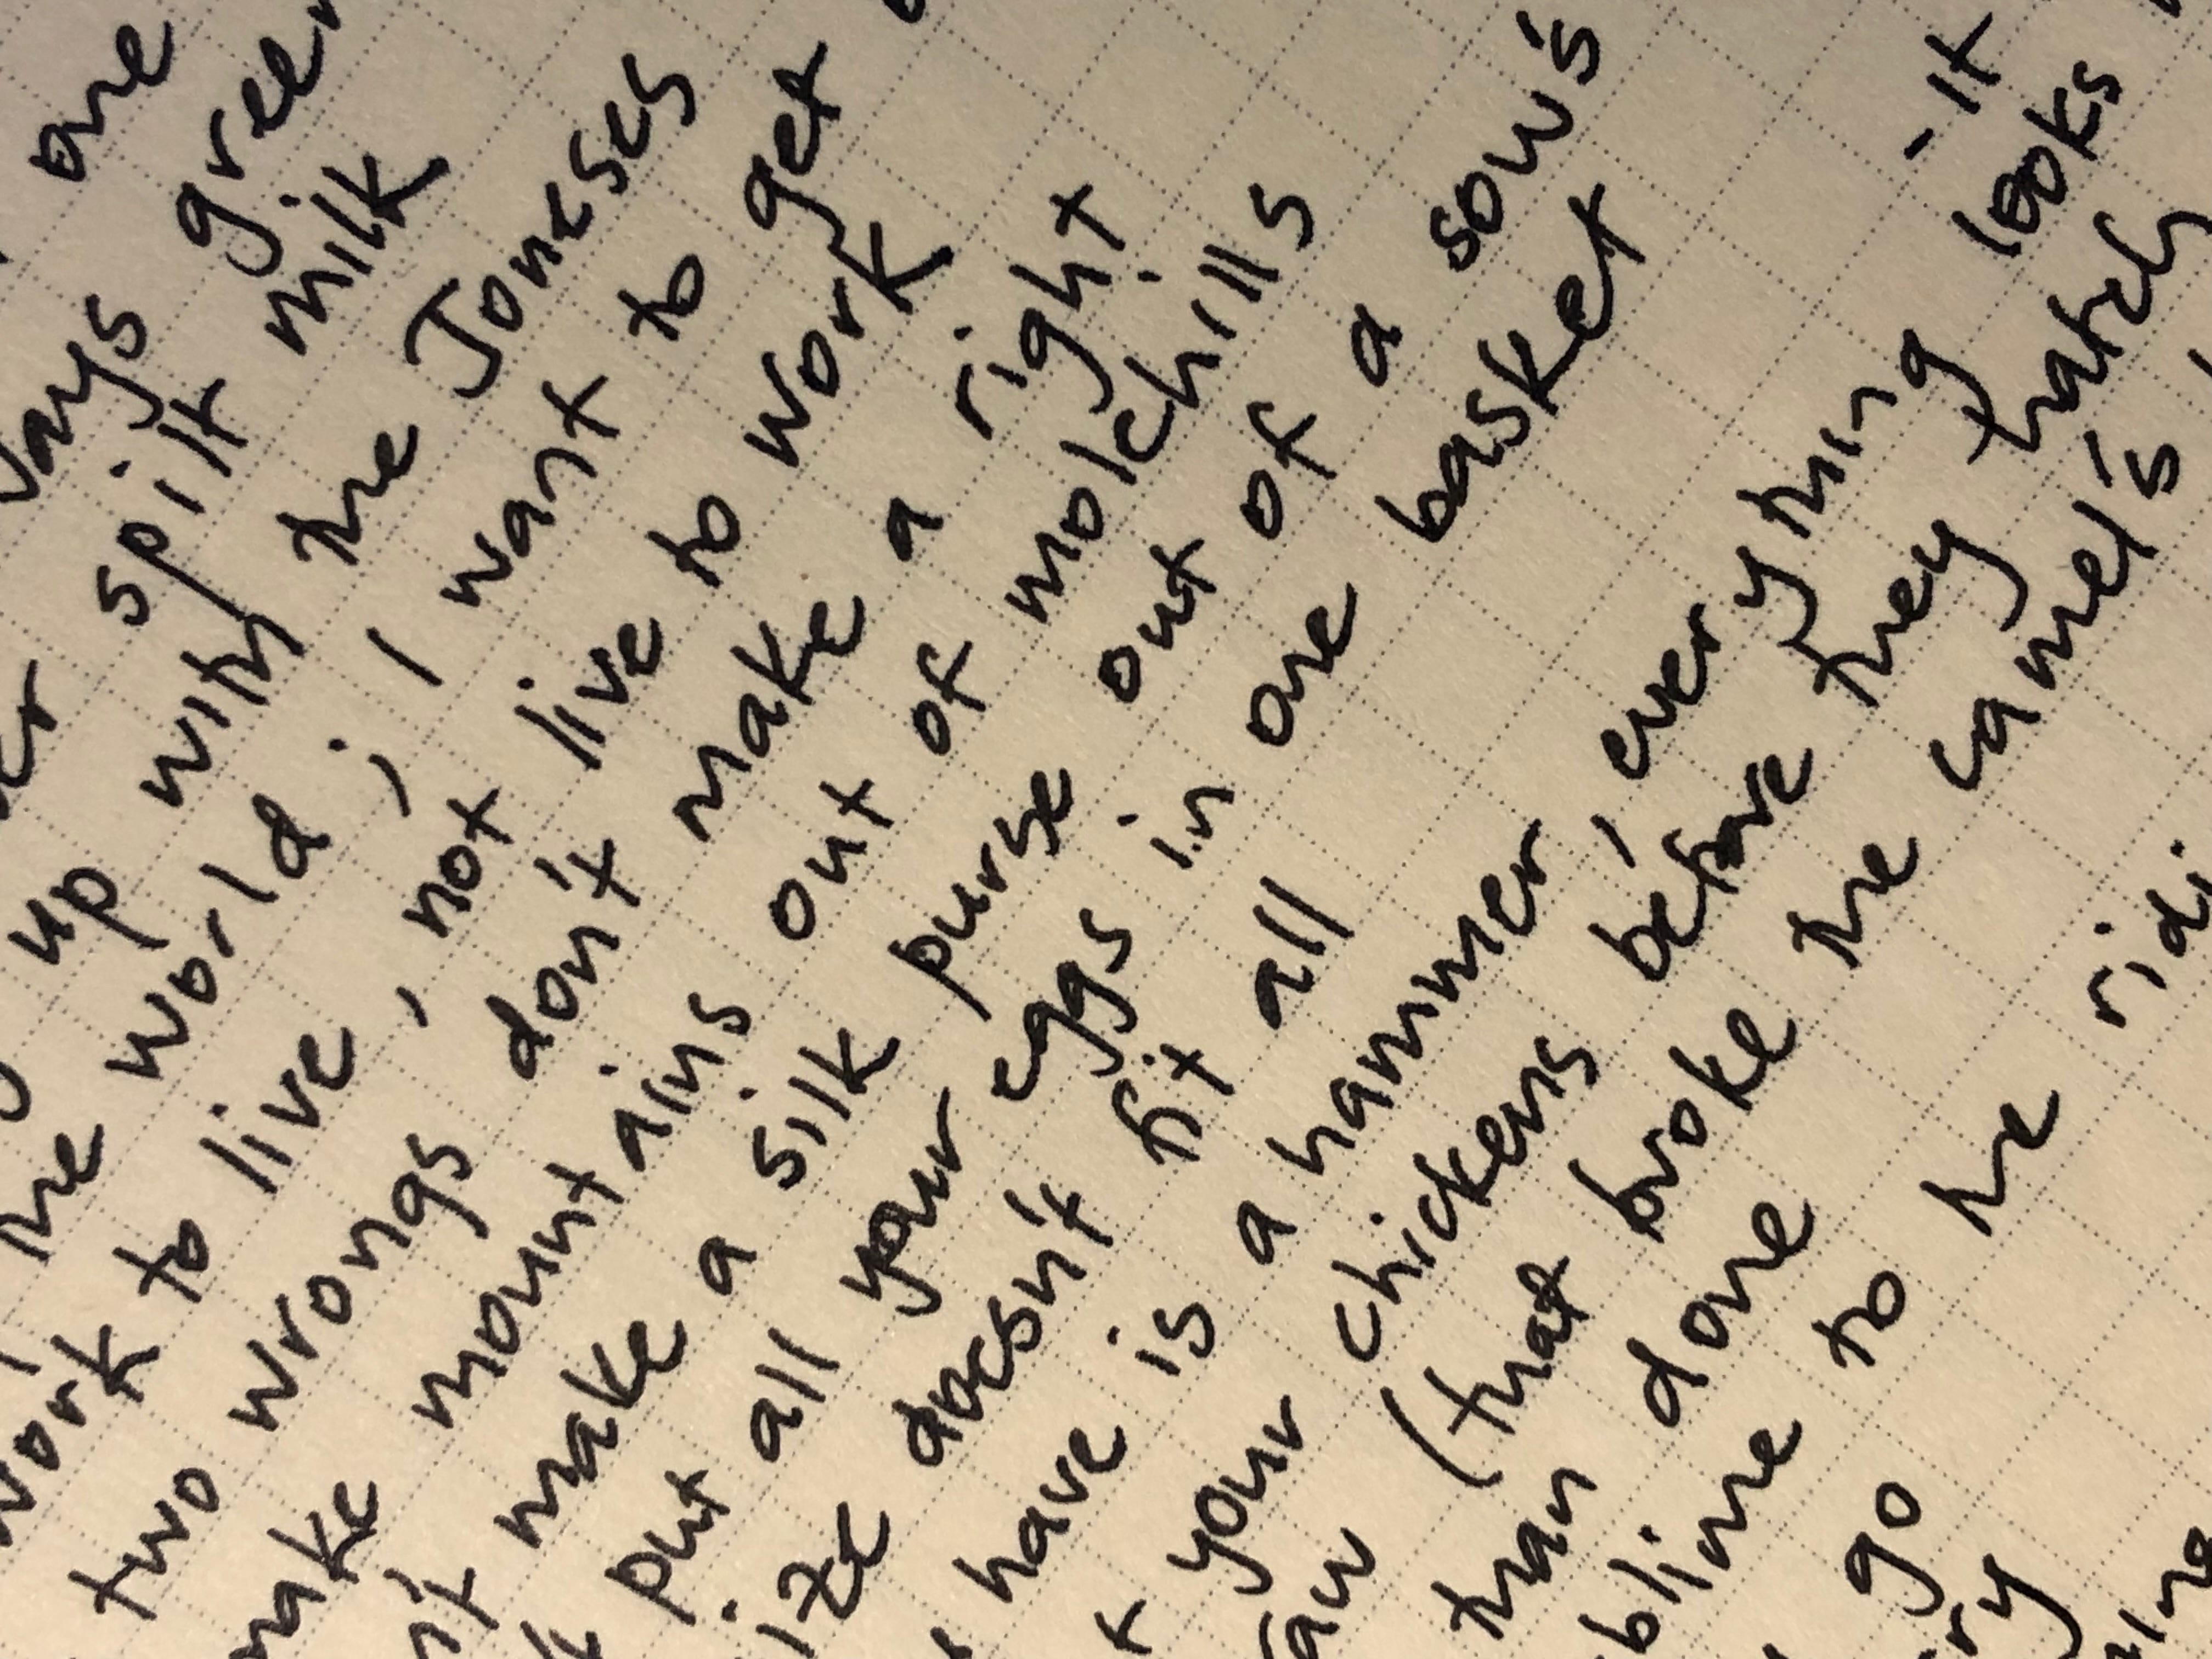 one
ways green
er spilt milk
up with the Joneses
the world ; I want to get
work to live , not live to work
two wrongs don't make a right
make mountains out of molehills
n't make a silk purse out of a sow's
put all your eggs in one basket
ize doesn't fit all - it
have is a hammer, everything looks
your chickens before they hatch
aw (that broke the camel's
than done
blime to the ridi
go
ry